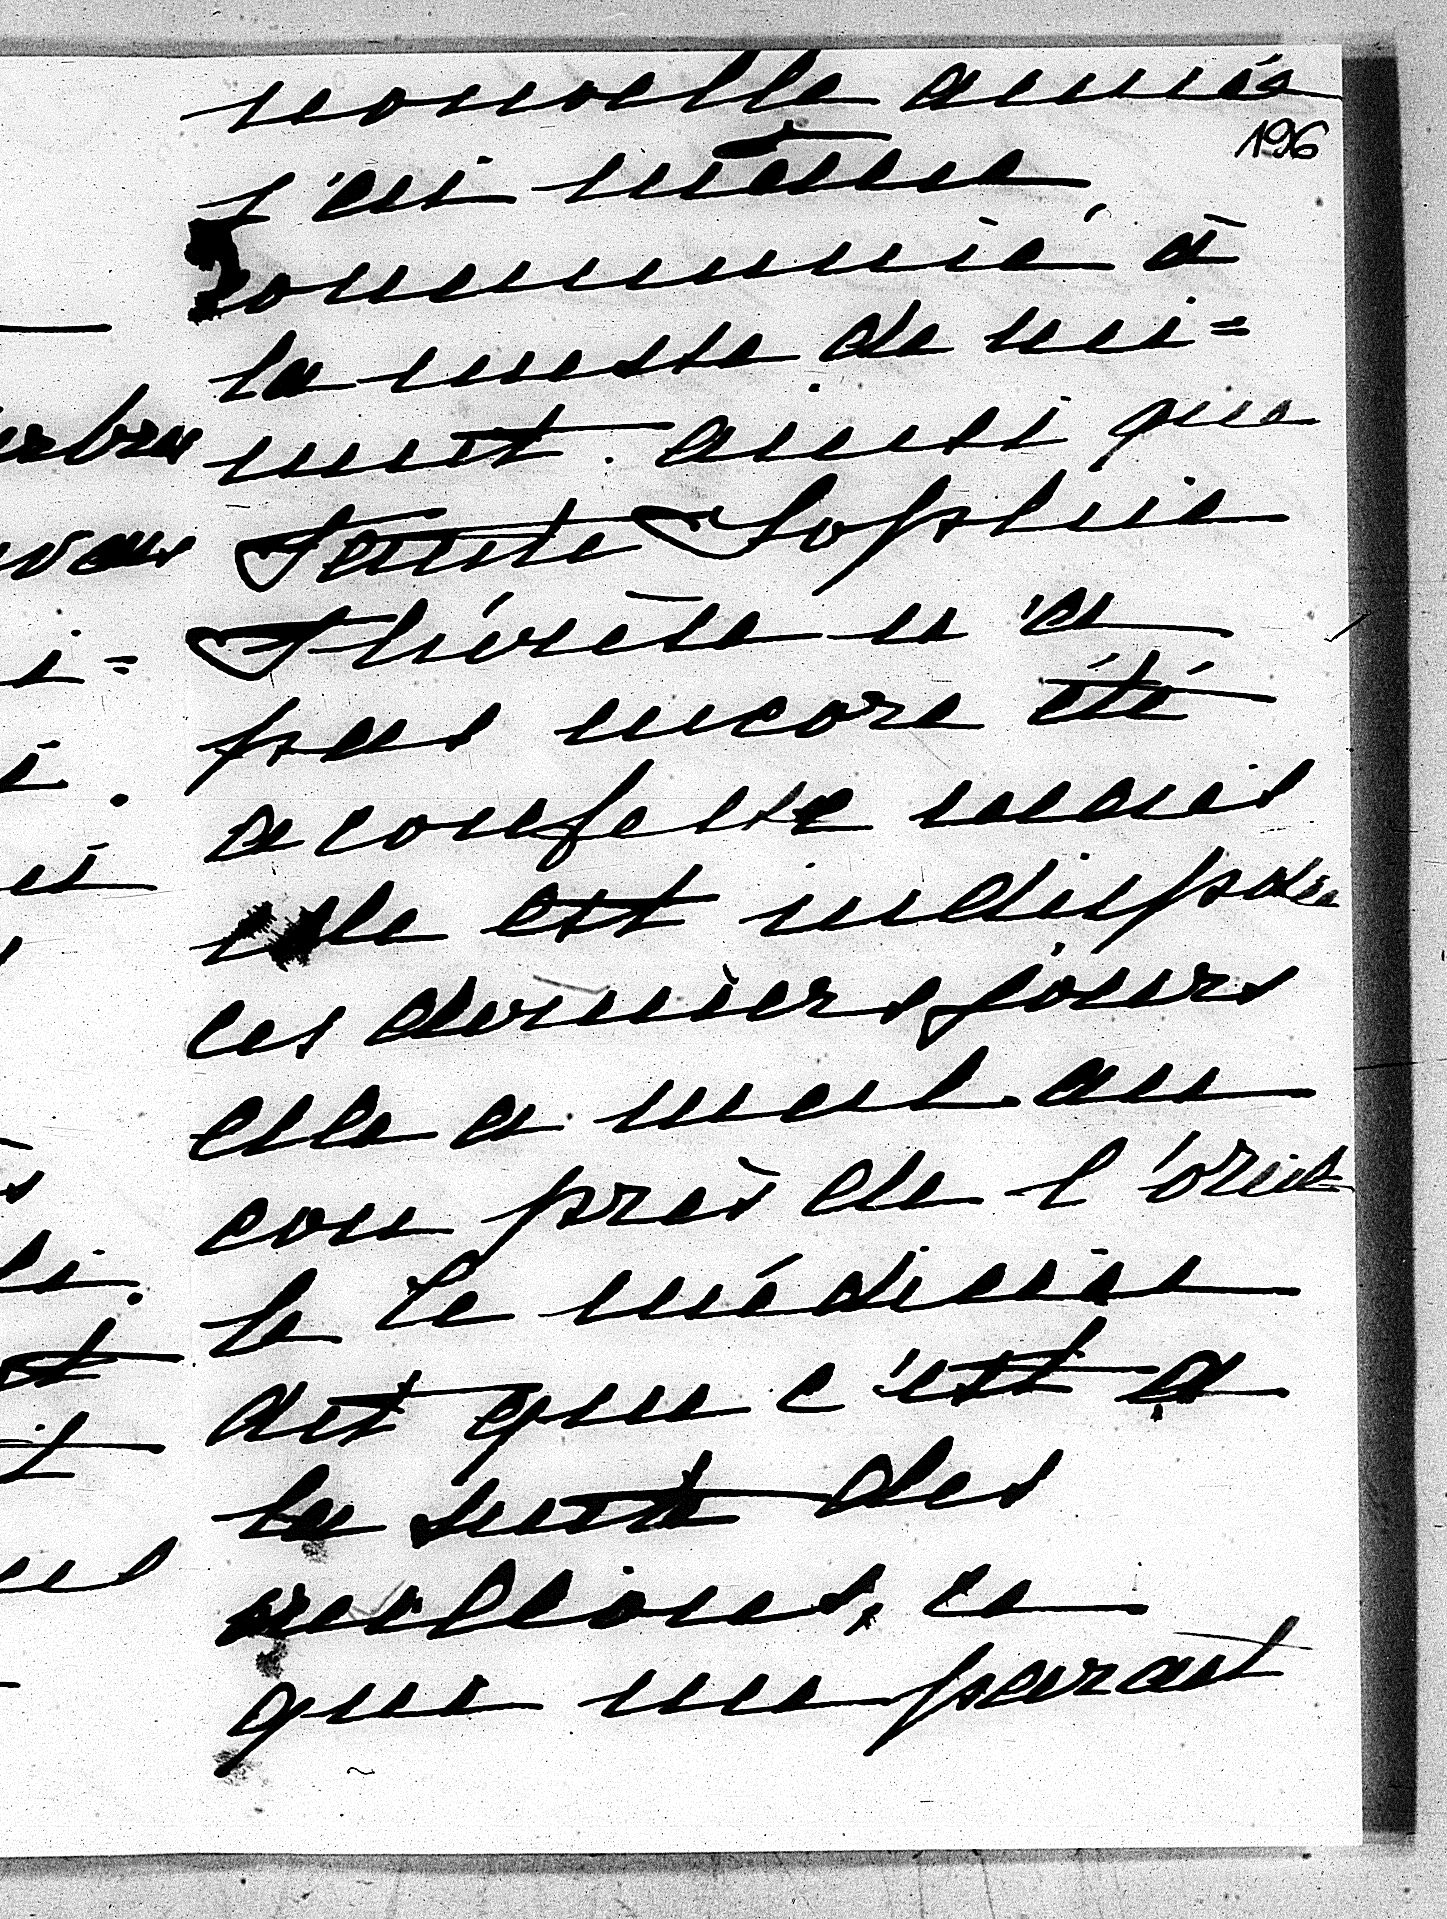 nouvelle année
196
j'ai même
communié à
la messe de mi=
nuit. ainsi que
Tante Sophie
Thérèse n'a
pas encore été
a confesse mais
elle est indisposée
ces derniers jours
elle a mal au
cou près de l'oreil
le le médecin
dit que c'est a
la suite des
oreillons, ce
qui me parait